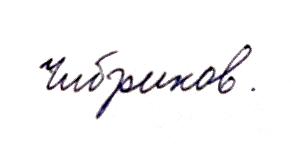 Чибриков.